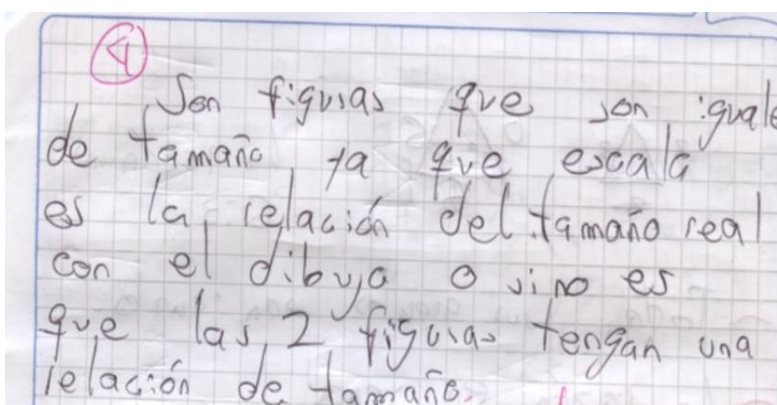 4
Son figuras que son iguale
de tamaño ya que escala
es la relación del tamaño real
con el dibujo o sino es
que las 2 figuras tengan una
relación de tamaño.